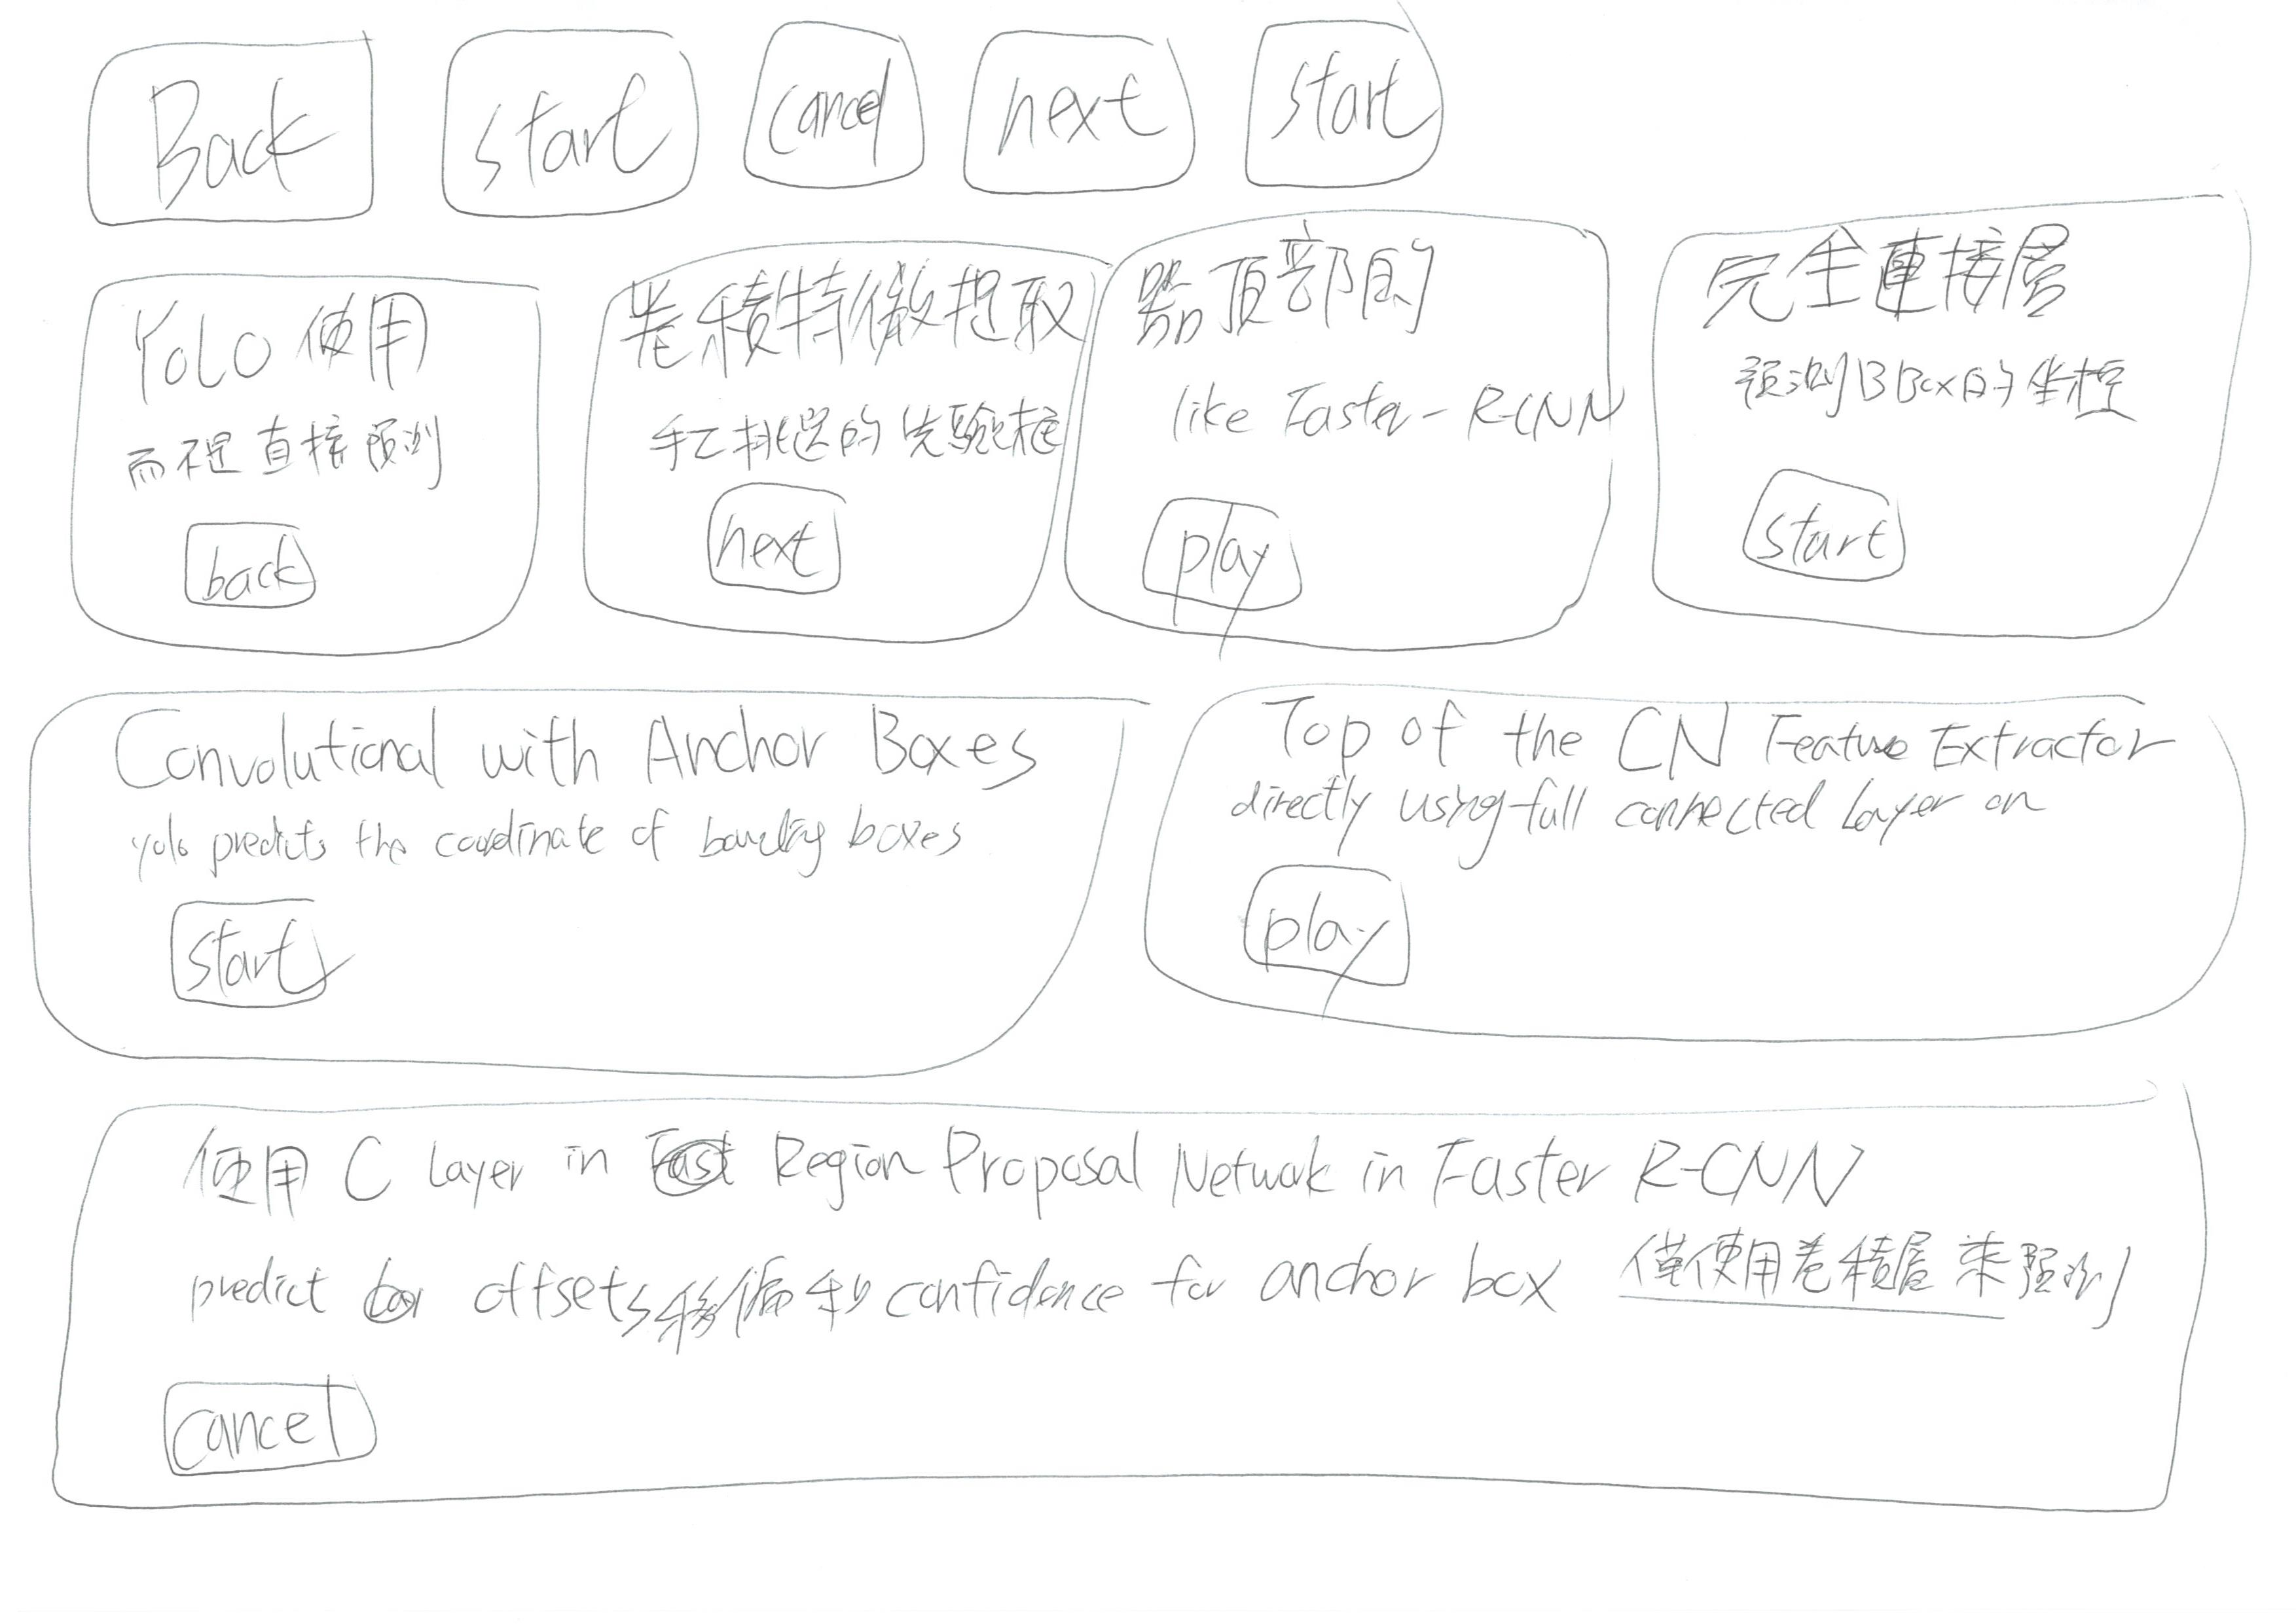 Back
start
cancel
next
start
Yolo 使用
而不是直接預測
back
卷積特徵提取
手工挑選的先驗框
next
器頂部的
like Faster-R-CNN
play
完全連接層
預測BBox的坐標
start
Convolutional with Anchor Boxes
yolo predicts the coordinate of bounding boxes
start
Top of the CN Feature Extractor
directly using full connected Layer on
play
使用 C Layer in Region Proposal Network in Faster R-CNN
predict offsets移偏和 confidence for anchor box 僅使用卷積層來預測
cancel